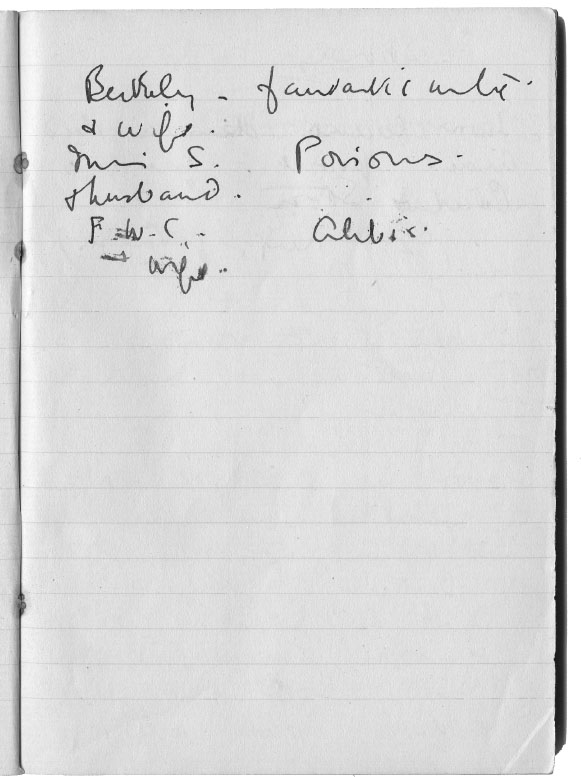 Berkeley - fantastic writer.
& wife.
S. Poisons.
& husband.
F.W.C. - Alibis.
→ wife.